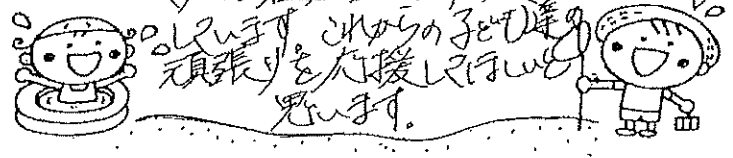 しています。これからの子ども達の
頑張りを応援してほしいと
思います。